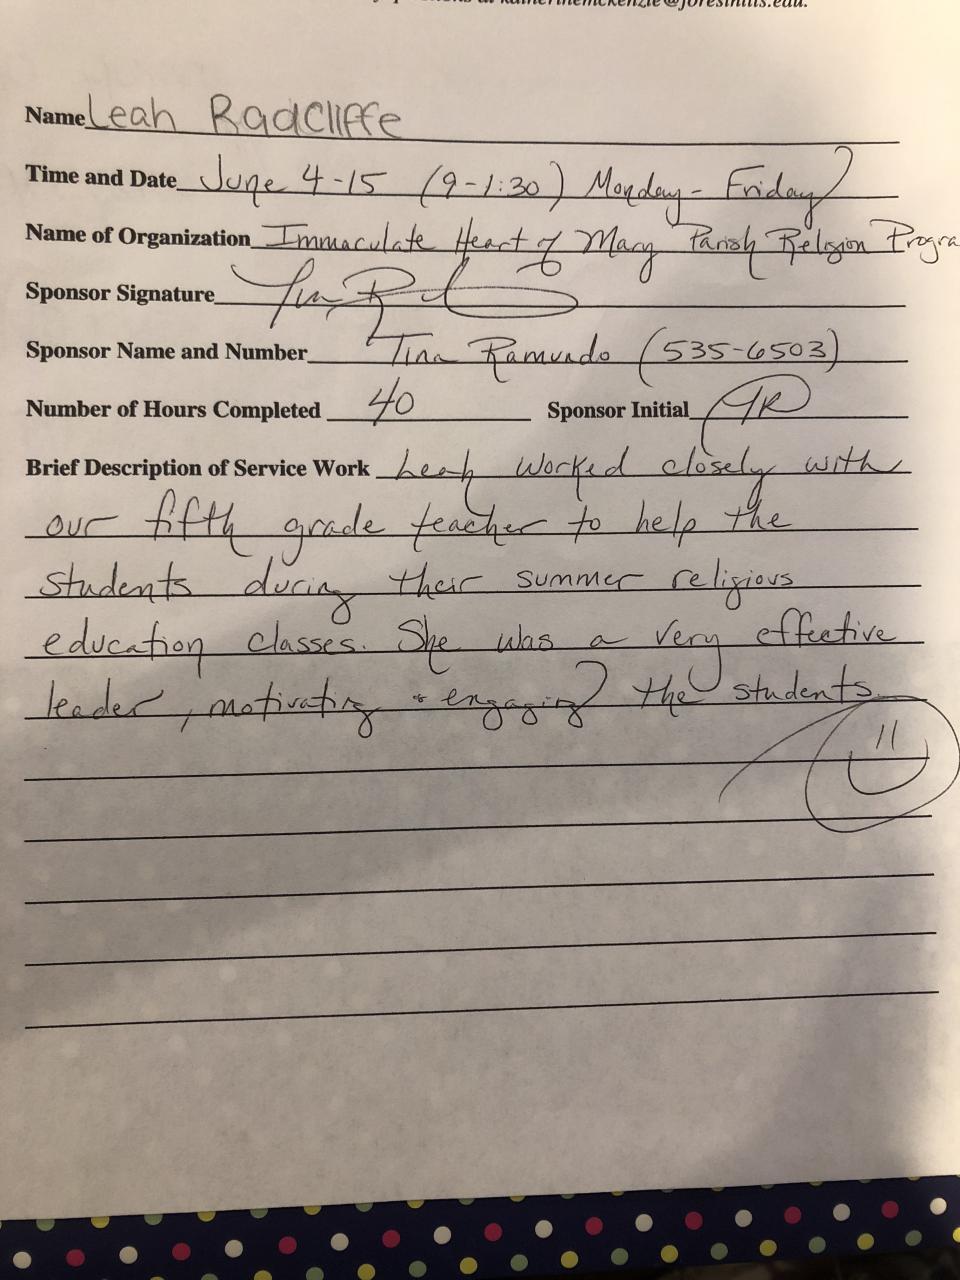 katherinemckenzie@foresthills.edu.
Name Leah Radcliffe
Time and Date June 4-15 (9-1:30) Monday-Friday
Name of Organization Immaculate Heart of Mary Parish Religion Progra
Sponsor Signature
Sponsor Name and Number Tina Ramundo (535-6503)
Number of Hours Completed 40 Sponsor Initial TR
Brief Description of Service Work Leah worked closely with
our fifth grade teacher to help the
students during their summer religious
education classes. She was a very effective
leader, motivating & engaging the students.